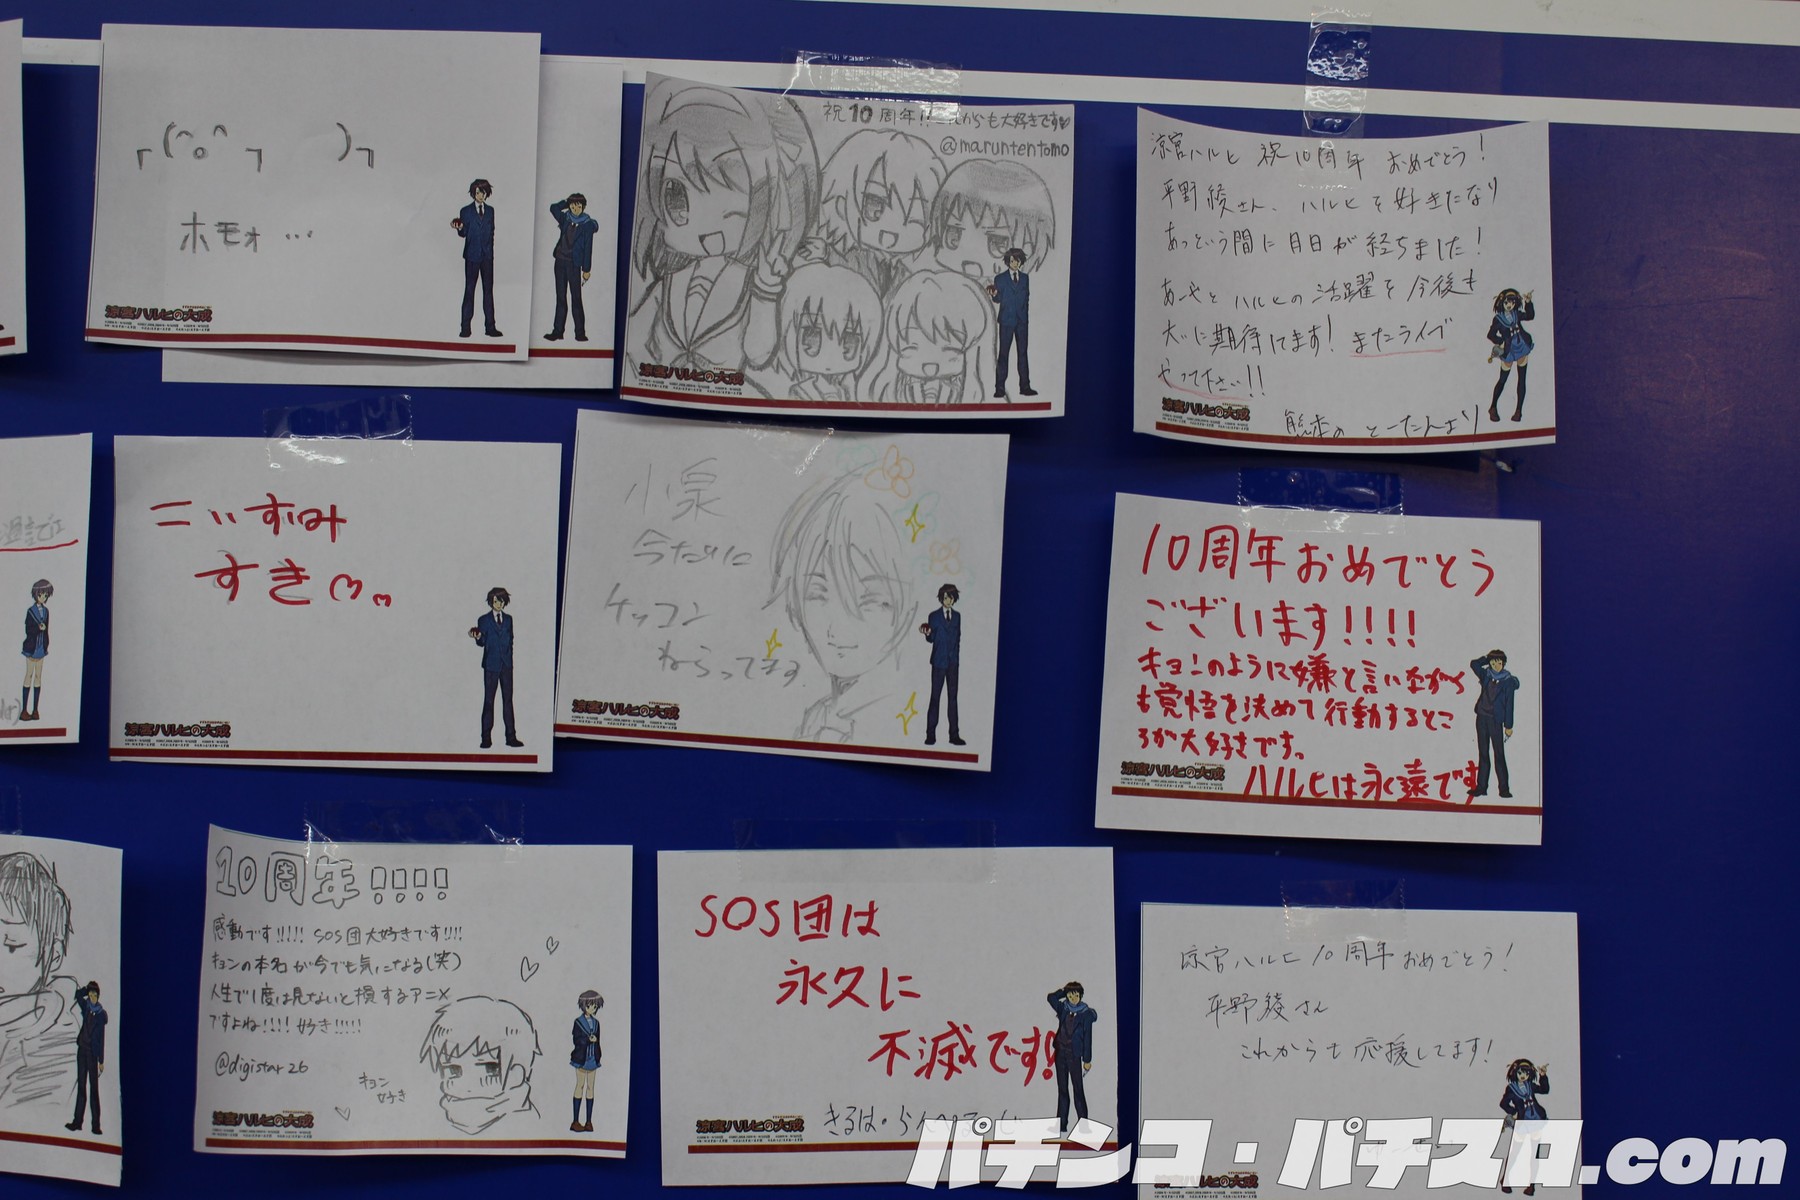 ┌(^o^ ┐ )┐
ホモォ …
涼宮ハルヒの大成
祝10周年!!これからも大好きです♡
@maruntentomo
涼宮ハルヒの大成
涼宮ハルヒ 祝10周年 おめでとう!
平野綾さん、ハルヒを好きたなり
あっという間に月日が経ちました!
あーやとハルヒの活躍を今後も
大いに期待してます! またライブ
やって下さい!!
涼宮ハルヒの大成
熊本の とーたんより
こいずみ
すき♡♡
涼宮ハルヒの大成
小泉
今だに
ケッコン
ねらってます。
涼宮ハルヒの大成
10周年おめでとう
ございます!!!!
キョンのように嫌と言いながら
も覚悟を決めて行動するとこ
ろが大好きです。
ハルヒは永遠です
涼宮ハルヒの大成
10周年!!!!
感動です!!!!! SOS団大好きです!!!!
キョンの本名が今でも気になる(笑)
人生で1度は見ないと損するアニメ
ですよね!!!! 好き!!!!!
@digistar26
キョン
好き
涼宮ハルヒの大成
SOS団は
永久に
不滅です!
涼宮ハルヒの大成
涼宮ハルヒ10周年おめでとう!
平野綾さん
これからも応援してます!
パチンコ・パチスロ.com